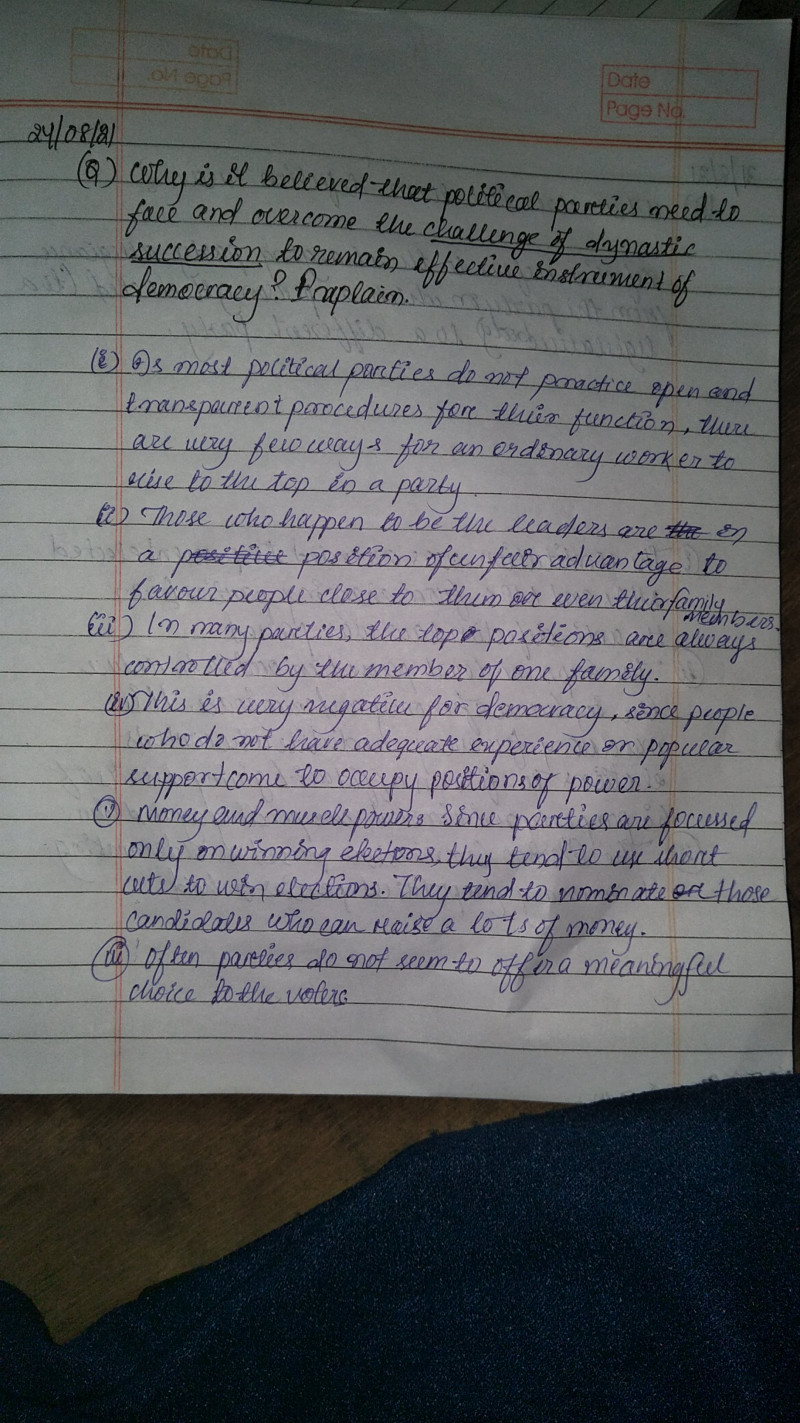 Date
Page No.
Date
Page No.
24/08/21
(Q) Why is it believed that political parties need to
face and overcome the challenge of dynastic
succession to remain effective instrument of
democracy? Explain.
(i) As most political parties do not practice open and
transparent procedures for their function, there
are very few ways for an ordinary worker to
rise to the top in a party.
(ii) Those who happen to be the leaders are the in
a positive position of unfair advantage to
favour people close to them or even their family
members.
(iii) In many parties, the top positions are always
controlled by the member of one family.
(iv) This is very negative for democracy, since people
who do not have adequate experience or popular
support come to occupy positions of power.
(v) Money and muscle power: Since parties are focussed
only on winning elections, they tend to use short
cuts to win elections. They tend to nominate or those
candidates who can raise a lots of money.
Often parties do not seem to offer a meaningful
choice to the voters